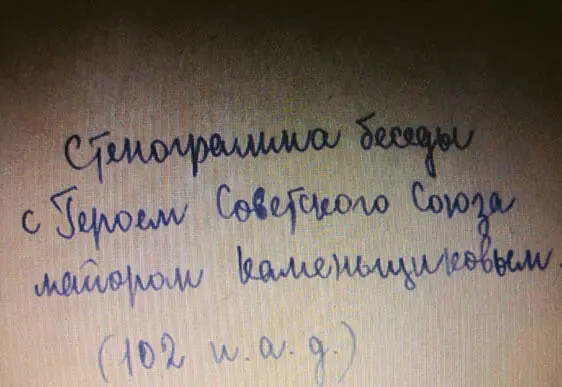 Стенограмма беседы
с Героем Советского Союза
майором Каменьщиковым.
(102 и.а.д.)